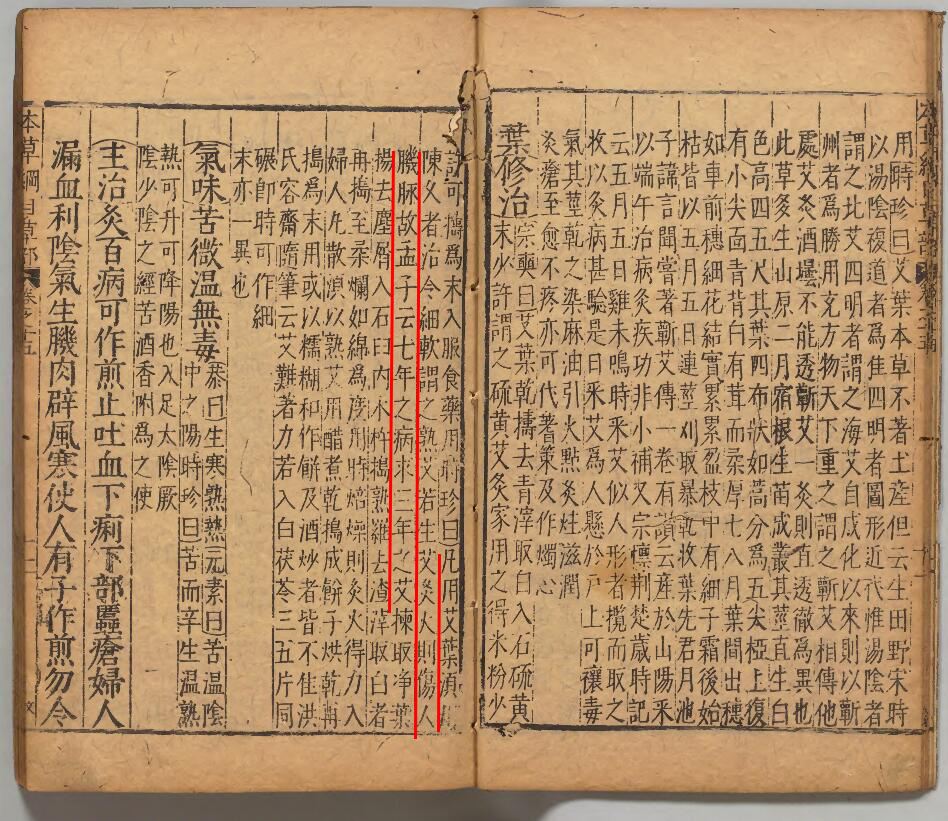 用時珍曰艾葉本草不著土産但云生田野宋時
以湯陰復道者爲隹四明者圖形近代惟湯陰者
謂之北艾四明者謂之海艾自成化以來則以蘄
州者爲勝用充方物天下重之謂之蘄艾相傳他
處艾灸酒罎不能透蘄艾一灸則直透徹爲異也
此草多生山原二月宿根生苗成叢其莖直生白
色高四五尺其葉四布狀如蒿分爲五尖椏上復
有小尖面青背白有茸而柔厚七八月葉間出穗
如車前穗細花結實累累盈枝中有細子霜後始
枯皆以五月五日連莖刈取暴乾收葉先君月池
子諱言聞嘗著蘄艾傳一卷有讚云産於山陽采
以端午治病灸疾功非小補又宗懍荆楚歲時記
云五月五日雞未鳴時采艾似人形者攬而取之
收以灸病甚驗是日采艾爲人懸於戶上可禳毒
氣其莖乾之染麻油引火點灸炷滋潤
灸瘡至愈不疼亦可代蓍策及作燭心
葉修治宗奭曰艾葉乾擣去青滓取白入石硫黄
末少許謂之硫黄艾灸家用之得米粉少
許可擣爲末入服食藥用時珍曰凡用艾葉須
陳久者治令細軟謂之熟艾若生艾灸火則傷人
肌脉故孟子云七年之病求三年之艾揀取净葉
揚去塵屑入石臼内木杵擣熟羅去渣滓取白者
再擣至柔爛如綿爲度用時焙燥則灸火得力入
婦人丸散須以熟艾用醋煮乾擣成餅子烘乾再
擣爲末用或以糯糊和作餅及酒炒者皆不佳洪
氏容齋隨筆云艾難著力若入白茯苓三五片同
碾即時可作細
末亦一異也
氣味苦微温無毒恭曰生寒熟熱元素曰苦温陰
中之陽時珍曰苦而辛生温熟
熱可升可降陽也入足太陰厥
陰少陰之經苦酒香附爲之使
主治灸百病可作煎止吐血下痢下部䘌瘡婦人
漏血利陰氣生肌肉辟風寒使人有子作煎勿令
本草綱目草部
卷之十五